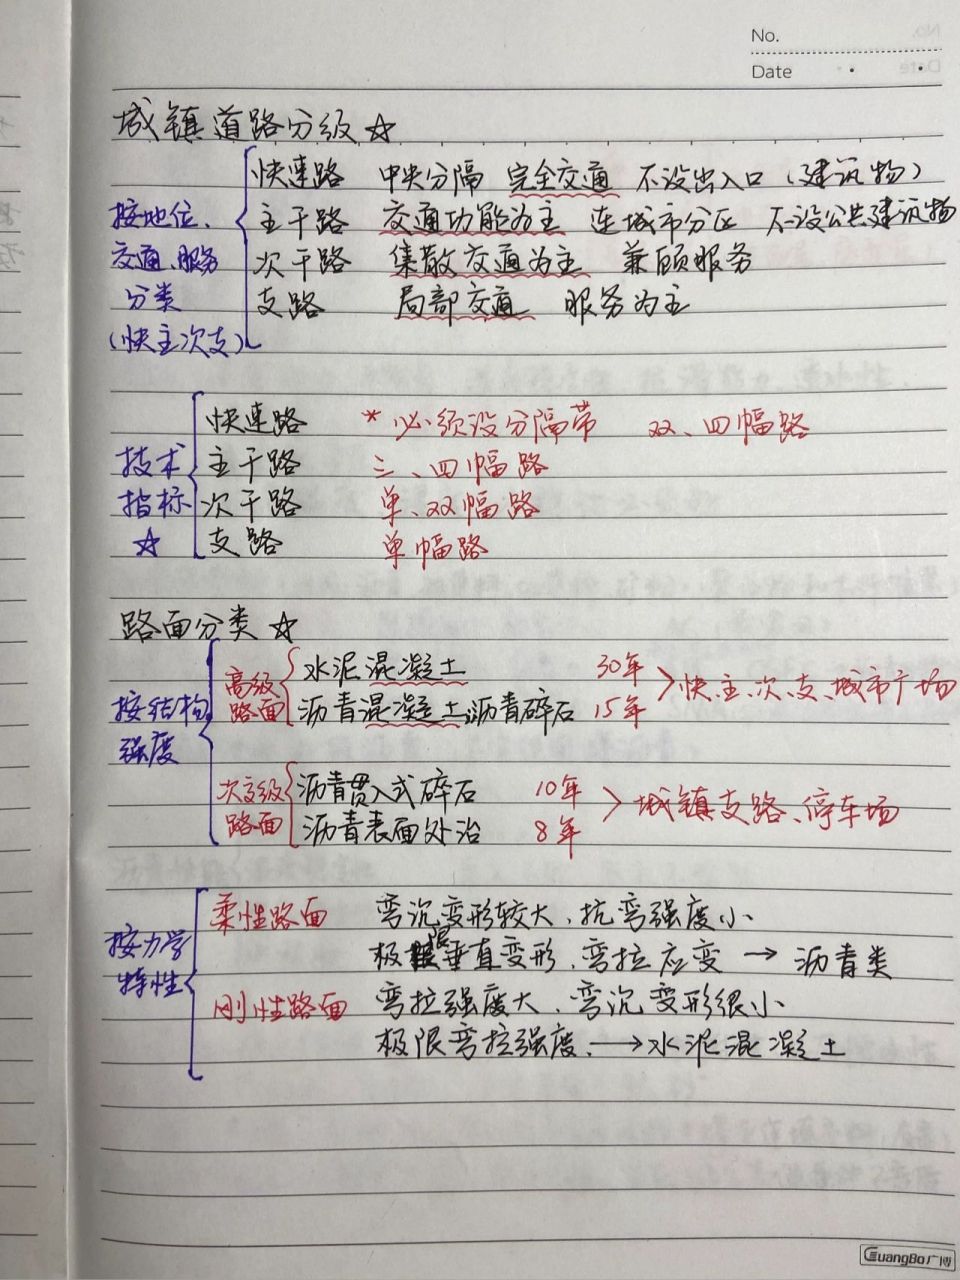 No.
Date
城镇道路分级 ☆
快速路 中央分隔 完全交通 不设出入口(建筑物)
按地位、 主干路 交通功能为主 连城市分区 不设公共建筑物
交通、服务 次干路 集散交通为主 兼顾服务
分类 支路 局部交通 服务为主
(快主次支)
快速路 *必须设分隔带 双、四幅路
技术 主干路 三、四幅路
指标 次干路 单、双幅路
☆ 支路 单幅路
路面分类 ☆
高级 水泥混凝土 30年 > 快、主、次、支、城市广场
按结构 路面 沥青混凝土、沥青碎石 15年
强度
次高级 沥青贯入式碎石 10年 > 城镇支路、停车场
路面 沥青表面处治 8年
柔性路面 弯沉变形较大、抗弯强度小
按力学 极限垂直变形、弯拉应变 → 沥青类
特性 刚性路面 弯拉强度大、弯沉变形很小
极限弯拉强度 → 水泥混凝土
GuangBo广博